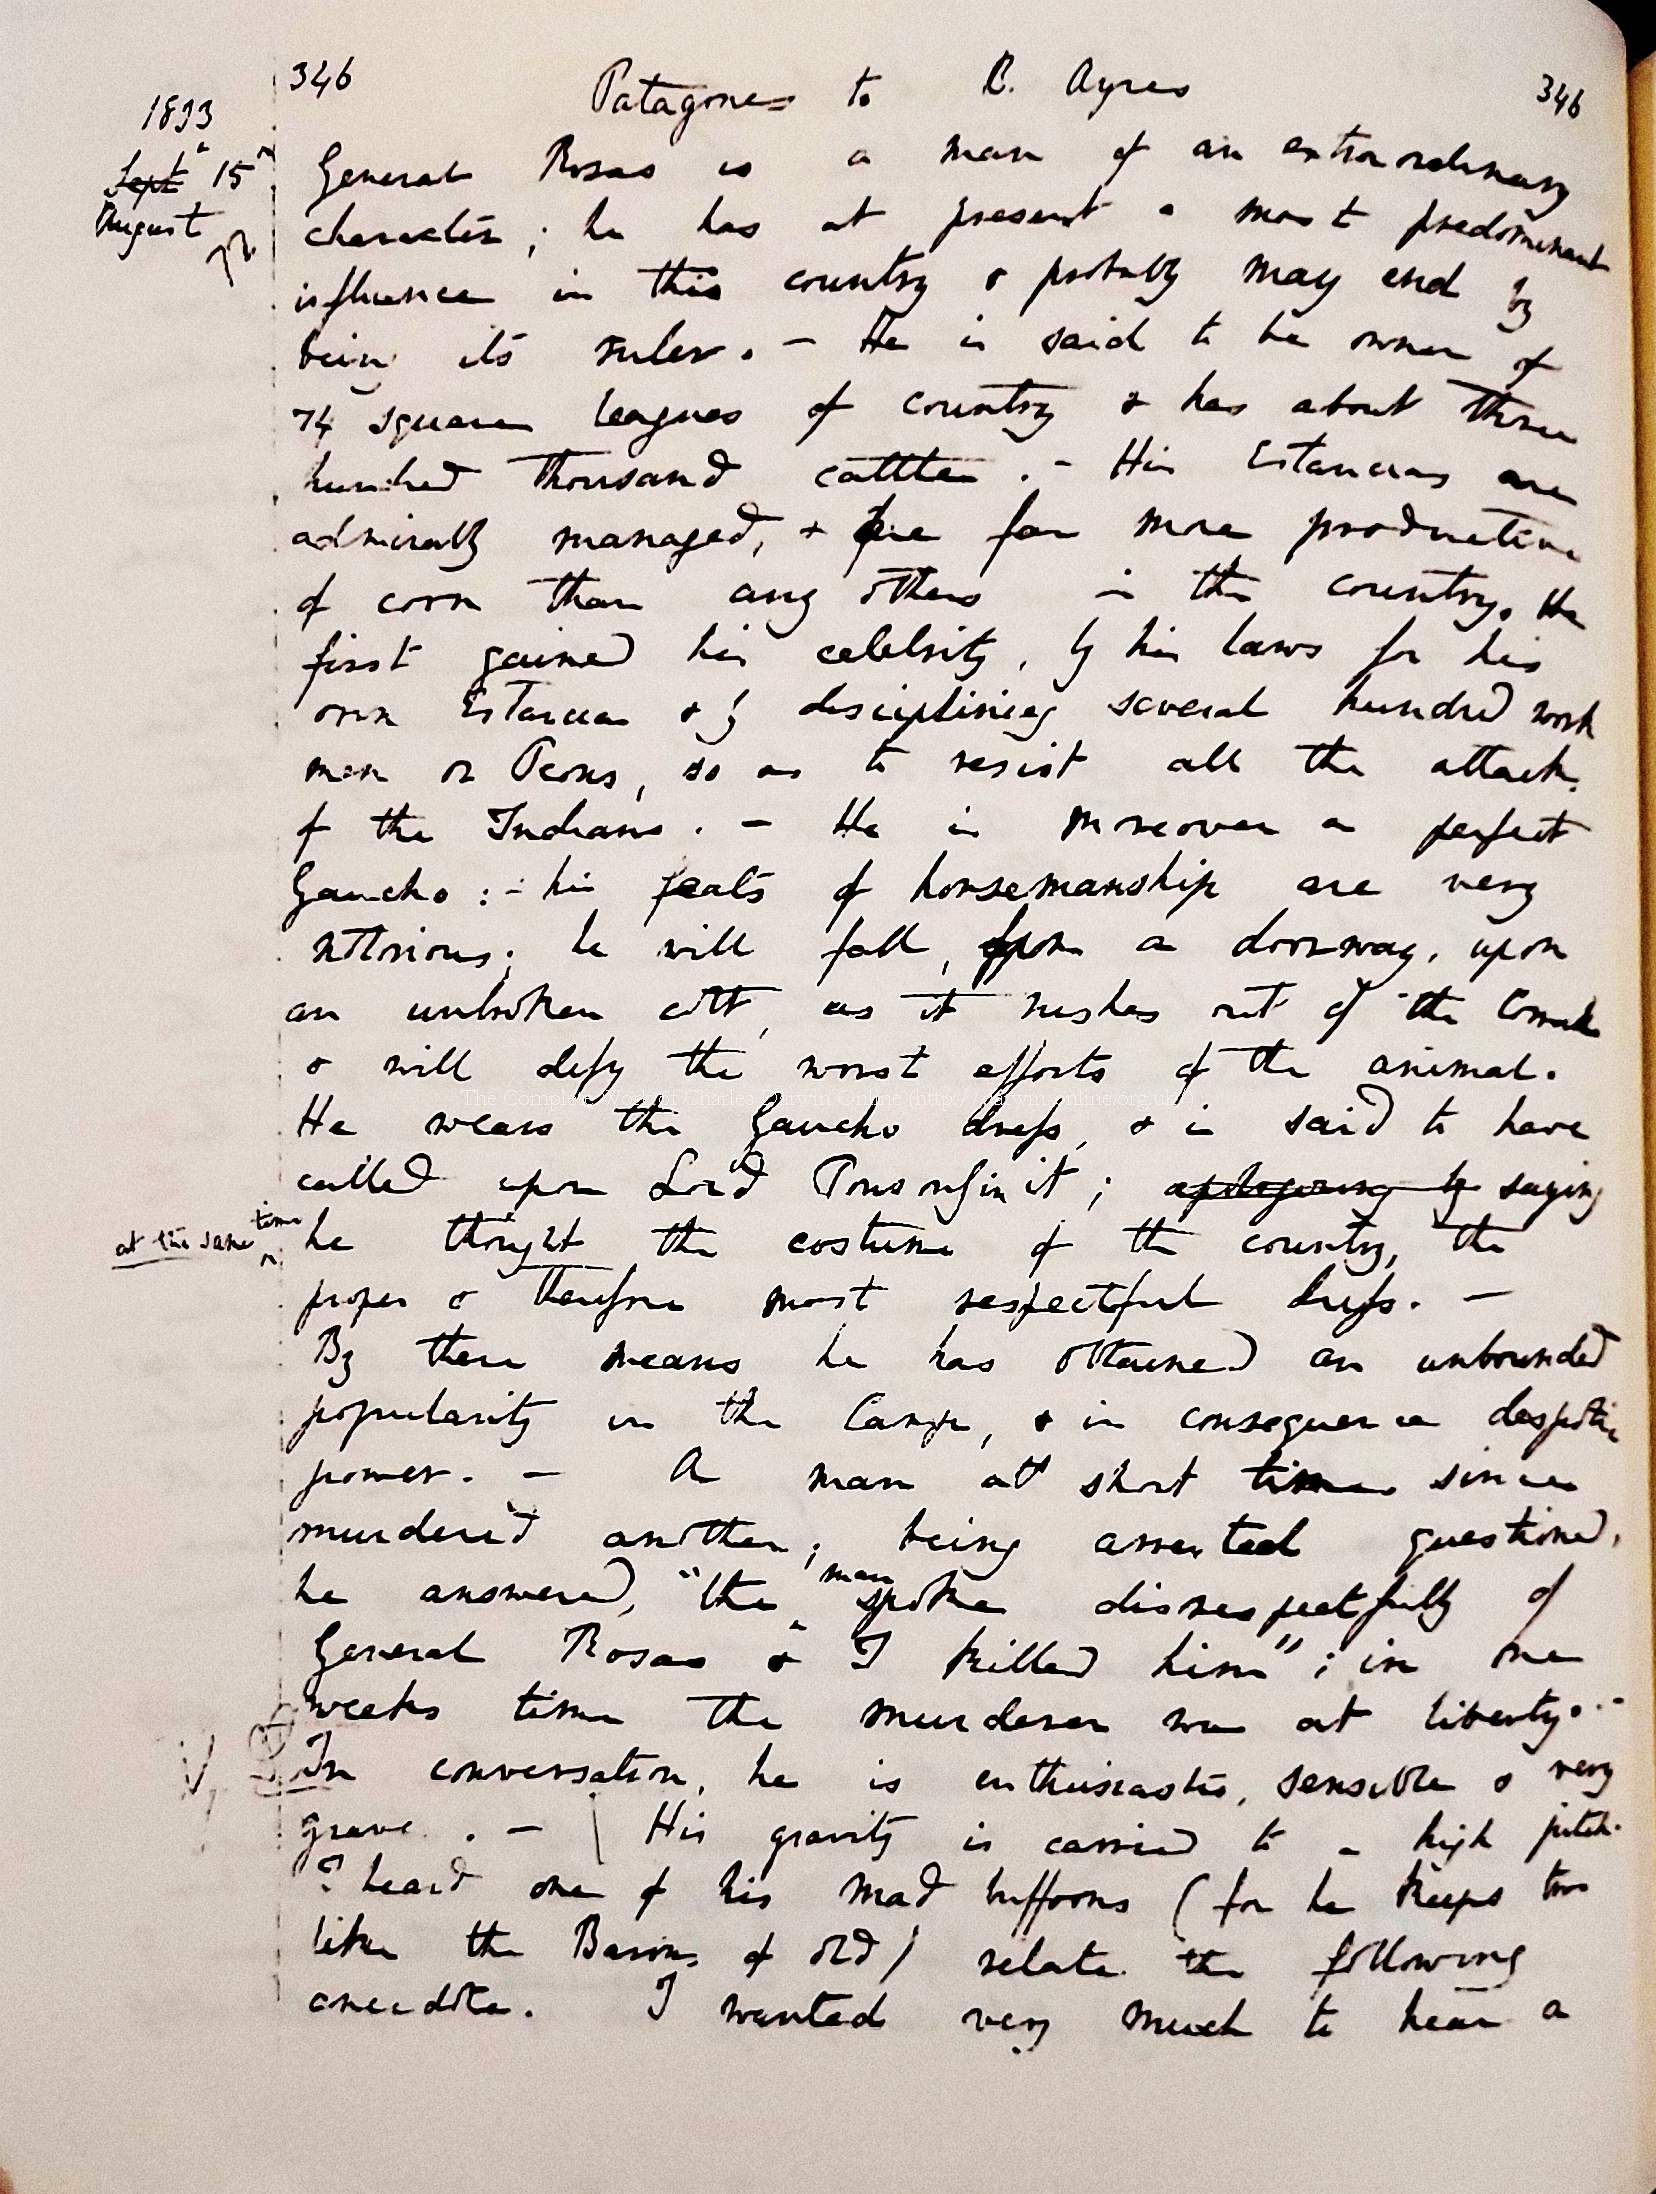 346 Patagones to B. Ayres 346
1833
Sept 15
August
General Rosas is a man of an extraordinary
character; he has at present a most predominant
influence in this country & probably may end by
being its ruler. — He is said to be owner of
74 square leagues of country & has about three
hundred thousand cattle. — His Estancias are
admirably managed, & are far more productive
of corn than any others in the country. He
first gained his celebrity, by his laws for his
own Estancia & by disciplining several hundred work
men or Peons, so as to resist all the attacks
of the Indians. — He is moreover a perfect
Gaucho: — his feats of horsemanship are very
notorious; he will fall, from a doorway, upon
an unbroken colt, as it rushes out of the Corral
& will defy the worst efforts of the animal.
The Complete Work of Charles Darwin Online (http://darwin-online.org.uk/)
He wears the Gaucho dress, & is said to have
called upon Lord Ponsonby in it; apologising by saying
at the same time
he thought the costume of the country, the
proper & therefore most respectful dress. —
By these means he has obtained an unbounded
popularity in the Camp, & in consequence despotic
power. — A man a short time since
murdered another; being arrested & questioned,
he answered, "the man spoke disrespectfully of
General Rosas & I killed him"; in one
weeks time the murderer was at liberty. —
In conversation, he is enthusiastic, sensible & very
grave. — His gravity is carried to a high pitch.
I heard one of his mad buffoons (for he keeps two
like the Barons of old) relate the following
anecdote. I wanted very much to hear a